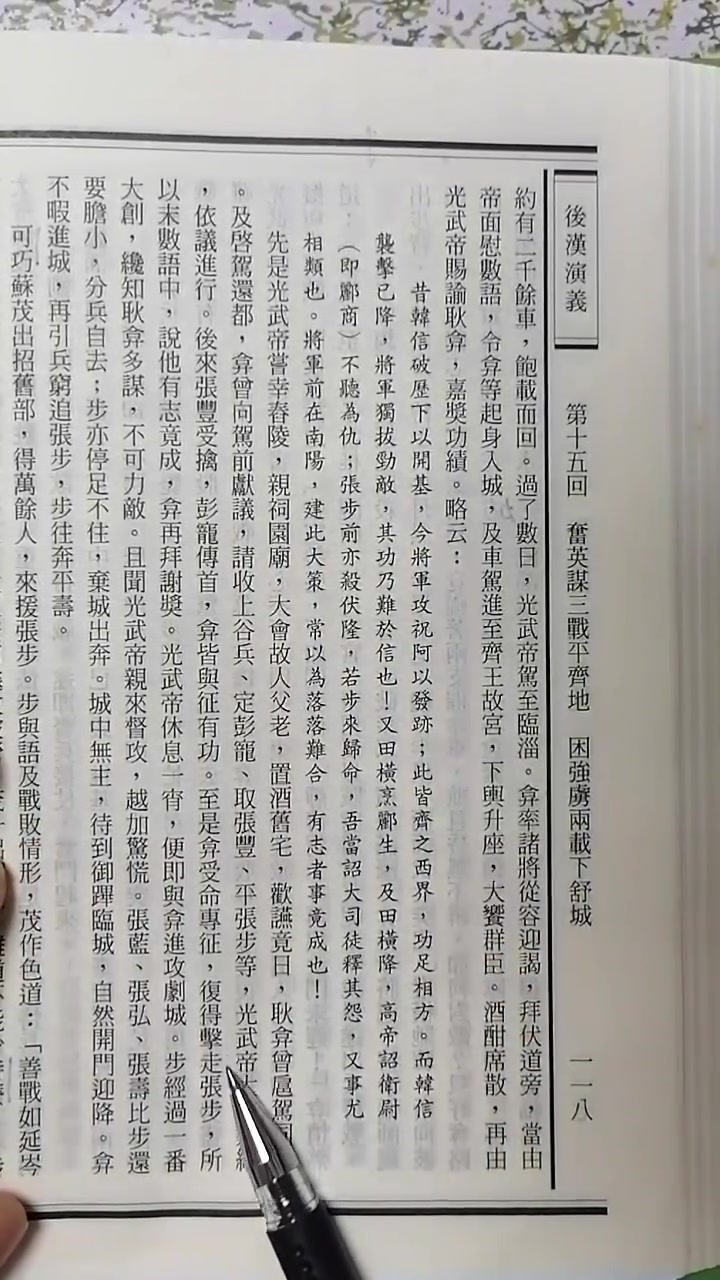 後漢演義
第十五回 奮英謀三戰平齊地 困強虜兩載下舒城
一一八
約有二千餘車，飽載而回。過了數日，光武帝駕至臨淄。弇率諸將從容迎謁，拜伏道旁，當由
帝面慰數語，令弇等起身入城，及車駕進至齊王故宮，下輿升座，大饗群臣。酒酣席散，再由
光武帝賜諭耿弇，嘉獎功績。略云：
昔韓信破歷下以開基，今將軍攻祝阿以發跡；此皆齊之西界，功足相方。而韓信
襲擊已降，將軍獨拔勁敵，其功乃難於信也！又田橫烹酈生，及田橫降，高帝詔衛尉
（即酈商）不聽為仇；張步前亦殺伏隆，若步來歸命，吾當詔大司徒釋其怨，又事尤
相類也。將軍前在南陽，建此大策，常以為落落難合，有志者事竟成也！
先是光武帝嘗幸舂陵，親祠園廟，大會故人父老，置酒舊宅，歡讌竟日，耿弇曾扈駕同
。及啓駕還都，弇曾向駕前獻議，請收上谷兵、定彭寵、取張豐、平張步等，光武帝
，依議進行。後來張豐受擒，彭寵傳首，弇皆與征有功。至是弇受命專征，復得擊走張步，所
以末數語中，說他有志竟成，弇再拜謝獎。光武帝休息一宵，便即與弇進攻劇城。步經過一番
大創，纔知耿弇多謀，不可力敵。且聞光武帝親來督攻，越加驚慌。張藍、張弘、張壽比步還
要膽小，分兵自去；步亦停足不住，棄城出奔。城中無主，待到御蹕臨城，自然開門迎降。弇
不暇進城，再引兵窮追張步，步往奔平壽。
可巧蘇茂出招舊部，得萬餘人，來援張步。步與語及戰敗情形，茂作色道：「善戰如延岑